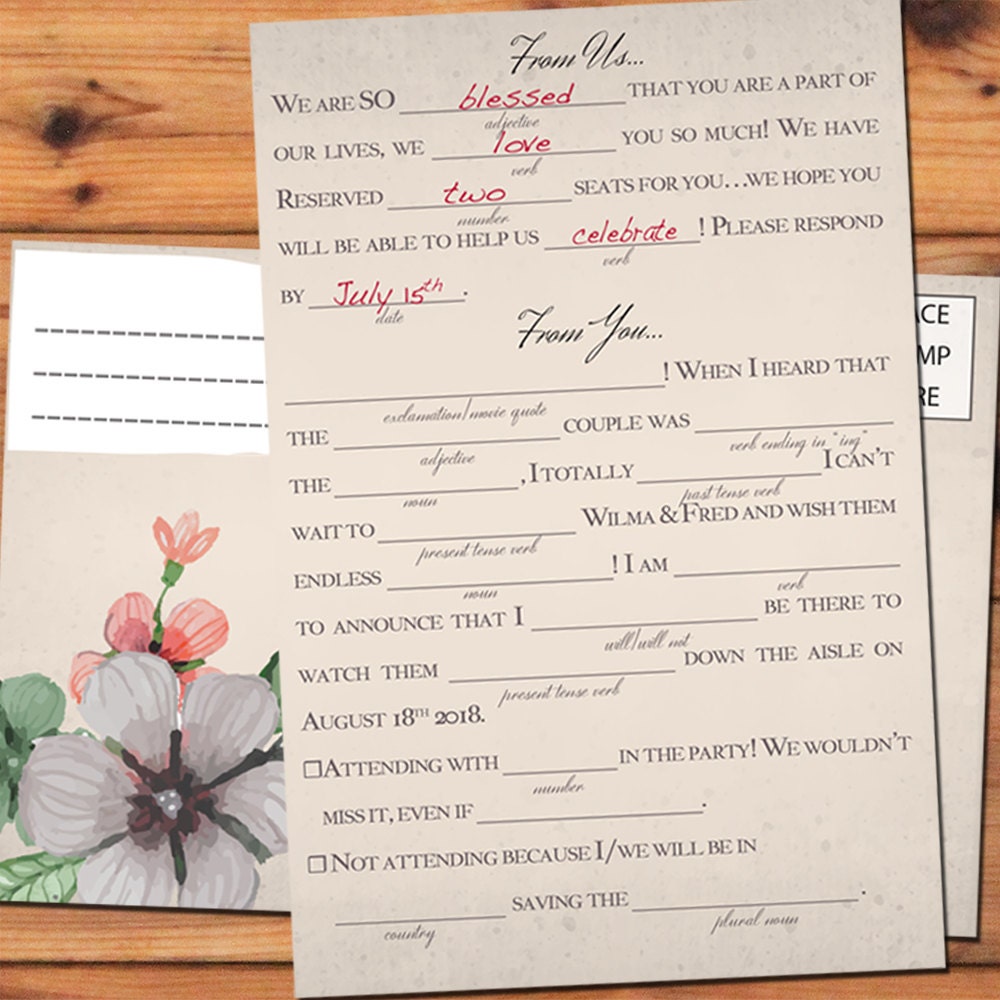 From Us...
WE ARE SO blessed THAT YOU ARE A PART OF
adjective
OUR LIVES, WE love YOU SO MUCH! WE HAVE
verb
RESERVED two SEATS FOR YOU...WE HOPE YOU
number
WILL BE ABLE TO HELP US celebrate! PLEASE RESPOND
verb
BY July 15th.
date
From You...
! WHEN I HEARD THAT
exclamation/movie quote
THE COUPLE WAS
adjective verb ending in "ing"
THE , I TOTALLY I CAN'T
noun past tense verb
WAIT TO WILMA & FRED AND WISH THEM
present tense verb
ENDLESS ! I AM
noun verb
TO ANNOUNCE THAT I BE THERE TO
will/will not
WATCH THEM DOWN THE AISLE ON
present tense verb
AUGUST 18TH 2018.
ATTENDING WITH IN THE PARTY! WE WOULDN'T
number
MISS IT, EVEN IF .
NOT ATTENDING BECAUSE I/WE WILL BE IN
SAVING THE .
country plural noun
ACE
MP
RE